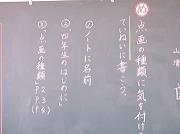 め 点画の種類に気を付け
ていねいに書こう。
①ノートに名前
②四年生のはじめに
③点画の種類
P.2
P.3
(P.4)